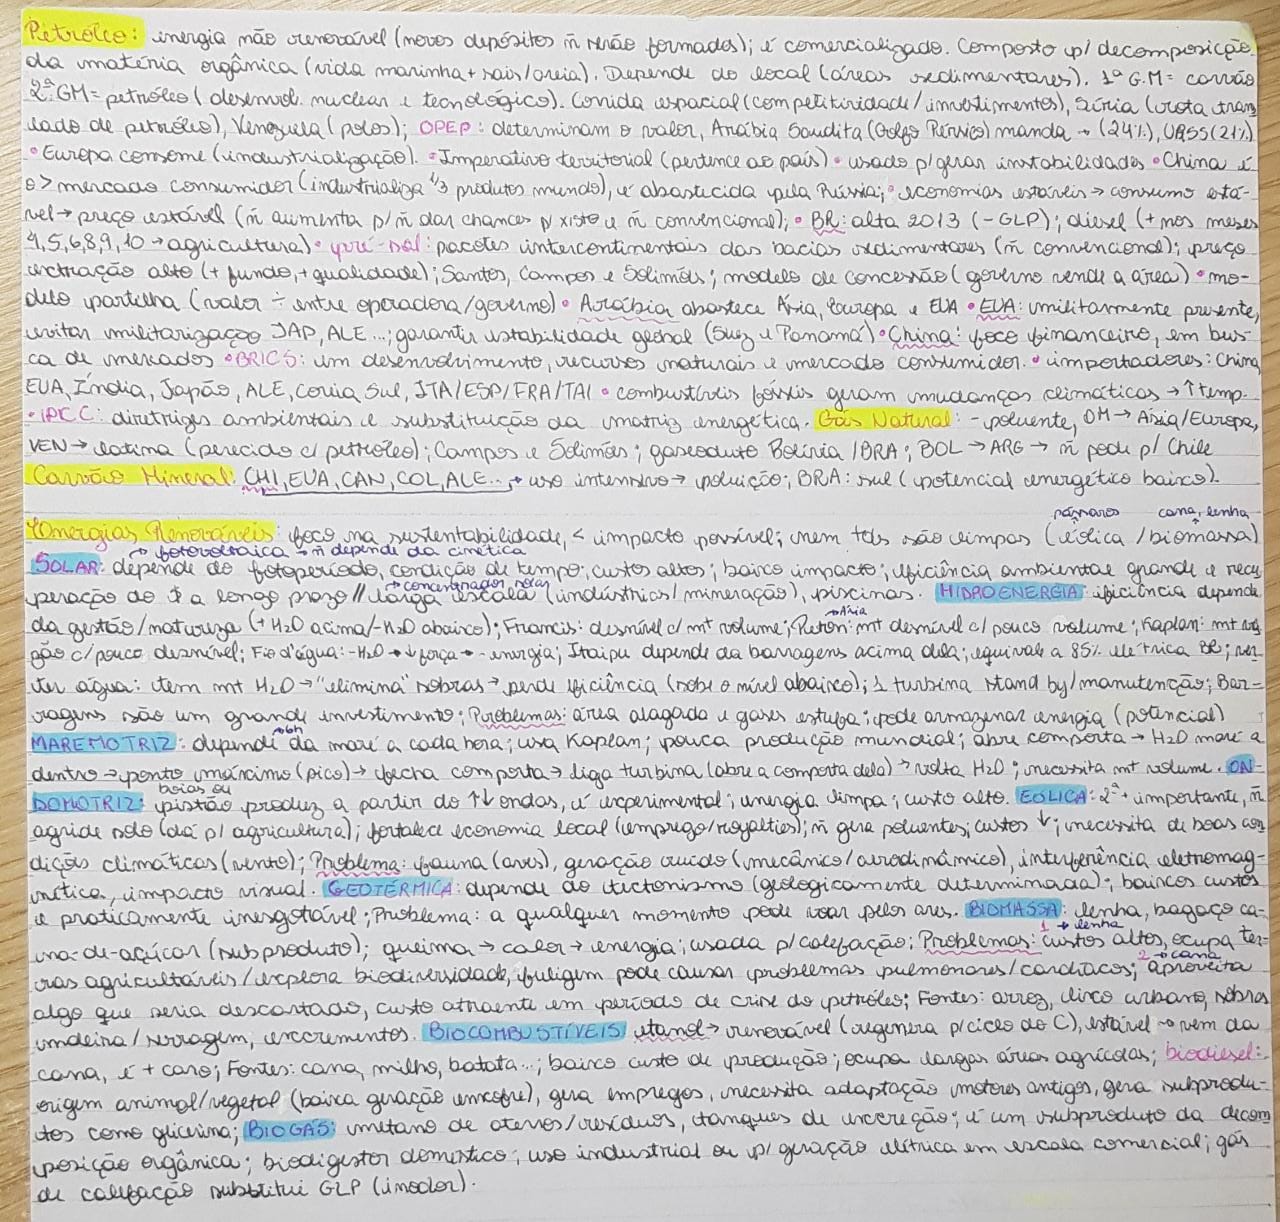 Petróleo: energia não renovável (novos depósitos ñ serão formados); é comercializado. Composto p/ decomposição
da matéria orgânica (vida marinha + sais/areia). Depende do local (áreas sedimentares). 1ª G.M = carvão
2ª GM = petróleo (desenvol. nuclear e tecnológico). Corrida espacial (competitividade/investimentos), Síria (rota tran
lado de petróleo), Venezuela (polos); OPEP: determinam o valor, Arábia Saudita (Golfo Pérsico) manda → (24%), URSS (21%)
• Europa consome (industrialização). • Imperativo territorial (pertence ao país) • usado p/ gerar instabilidades • China é
o > mercado consumidor (industrializa 1/3 produtos mundo), é abastecida pela Rússia; • economias estáveis → consumo está-
vel → preço estável (ñ aumenta p/ ñ dar chances p/ xisto e ñ convencional); • BR: alta 2013 (- GLP); diesel (+ nos meses
4,5,6,8,9,10 → agricultura) • pré-sal: pacotes intercontinentais das bacias sedimentares (ñ convencional); preço
extração alto (+ fundo, + qualidade); Santos, Campos e Solimões; modelo de concessão (governo vende a área) • mo-
delo partilha (valor ÷ entre operadora/governo) • Arábia abastece Ásia, Europa e EUA • EUA: militarmente presente,
evitar militarização JAP, ALE...; garantir estabilidade global (Suez e Panamá) • China: foco financeiro, em bus
ca de mercados • BRICS: em desenvolvimento, recursos naturais e mercado consumidor. • importadores: China
EUA, Índia, Japão, ALE, Coreia Sul, ITA/ESP/FRA/TAI • combustíveis fósseis geram mudanças climáticas → ↑ temp.
• IPCC: diretrizes ambientais e substituição da matriz energética. Gás Natural: - poluente, OM → Ásia/Europa,
VEN → latina (parecido c/ petróleo); Campos e Solimões; gasoduto Bolívia/BRA; BOL → ARG → ñ pode p/ Chile
Carvão Mineral: CHI, EUA, CAN, COL, ALE... → uso intensivo → poluição; BRA: sul (potencial energético baixo).
pássaros cana, lenha
Energias Renováveis: foco na sustentabilidade, < impacto possível; nem tds são limpas (eólica / biomassa)
→ fotovoltaica → ñ depende da cinética
SOLAR: depende do fotoperíodo, condição de tempo; custos altos; baixo impacto; eficiência ambiental grande e recu
→ concentrador solar
peração do $ a longo prazo // larga escala (indústrias/mineração), piscinas. HIDROENERGIA: eficiência depende
→ Ásia
da gestão/natureza (+ H2O acima/- H2O abaixo); Francis: desnível c/ mt volume; Pelton: mt desnível c/ pouco volume; Kaplan: mt va
zão c/ pouco desnível; Fio d'água: - H2O → ↓ força → - energia; Itaipu depende da barragens acima dela; equivale a 85% elétrica BR; ver
ter água: tem mt H2O → "elimina" sobras → perde eficiência (sobe o nível abaixo); 1 turbina stand by/manutenção; Bar-
ragens são um grande investimento; Problemas: área alagada e gases estufa; pode armazenar energia (potencial)
→ 6h
MAREMOTRIZ: depende da maré a cada hora; usa Kaplan; pouca produção mundial; abre comporta → H2O maré a
dentro → ponto máximo (pico) → fecha comporta → liga turbina (abre a comporta dela) → volta H2O; necessita mt volume. ON-
boias ou
DOMOTRIZ: pistão produz a partir do ↑↓ ondas, é experimental; energia limpa; custo alto. EÓLICA: 2ª + importante, ñ
agride solo (dá p/ agricultura); fortalece economia local (emprego/royalties); ñ gera poluentes; custos ↓; necessita de boas con
dições climáticas (vento); Problema: fauna (aves), geração ruído (mecânico/aerodinâmico), interferência eletromag
nética, impacto visual. GEOTÉRMICA: depende do tectonismo (geologicamente determinada); baixos custos
e praticamente inesgotável; Problema: a qualquer momento pode voar pelos ares. BIOMASSA: lenha, bagaço ca-
1 → lenha
na-de-açúcar (subproduto); queima → calor → energia; usada p/ calefação; Problemas: custos altos, ocupa ter-
2 → cana
ras agricultáveis/explora biodiversidade, fuligem pode causar problemas pulmonares/cardíacos; aproveita
algo que seria descartado, custo atraente em período de crise do petróleo; Fontes: arroz, lixo urbano, sobras
madeira/serragem, excrementos. BIOCOMBUSTÍVEIS: etanol → renovável (regenera p/ ciclo do C), estável → vem da
cana, é + caro; Fontes: cana, milho, batata...; baixo custo de produção; ocupa largas áreas agrícolas; biodiesel:
origem animal/vegetal (baixa geração enxofre), gera empregos, necessita adaptação motores antigos, gera subprodu-
tos como glicerina; BIOGÁS: metano de aterros/resíduos, tanques de excreção; é um subproduto da decom
posição orgânica; biodigestor doméstico; uso industrial ou p/ geração elétrica em escala comercial; gás
de calefação substitui GLP (inodor).